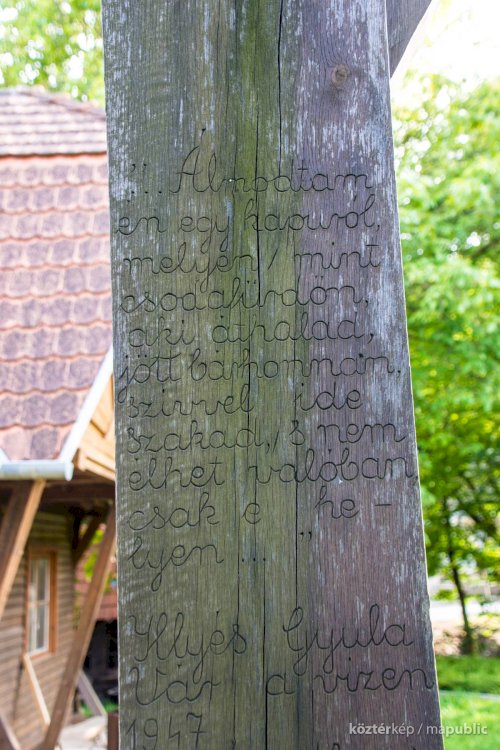 "...Álmodtam
én egy kapuról,
melyen, mint
csodafürdőn,
aki áthalad,
jött bárhonnan,
szívvel ide
szakad, s nem
élhet valóban,
csak e he -
lyen ... "
Illyés Gyula
Vár a vizen
1947
köztérkép / mapublic